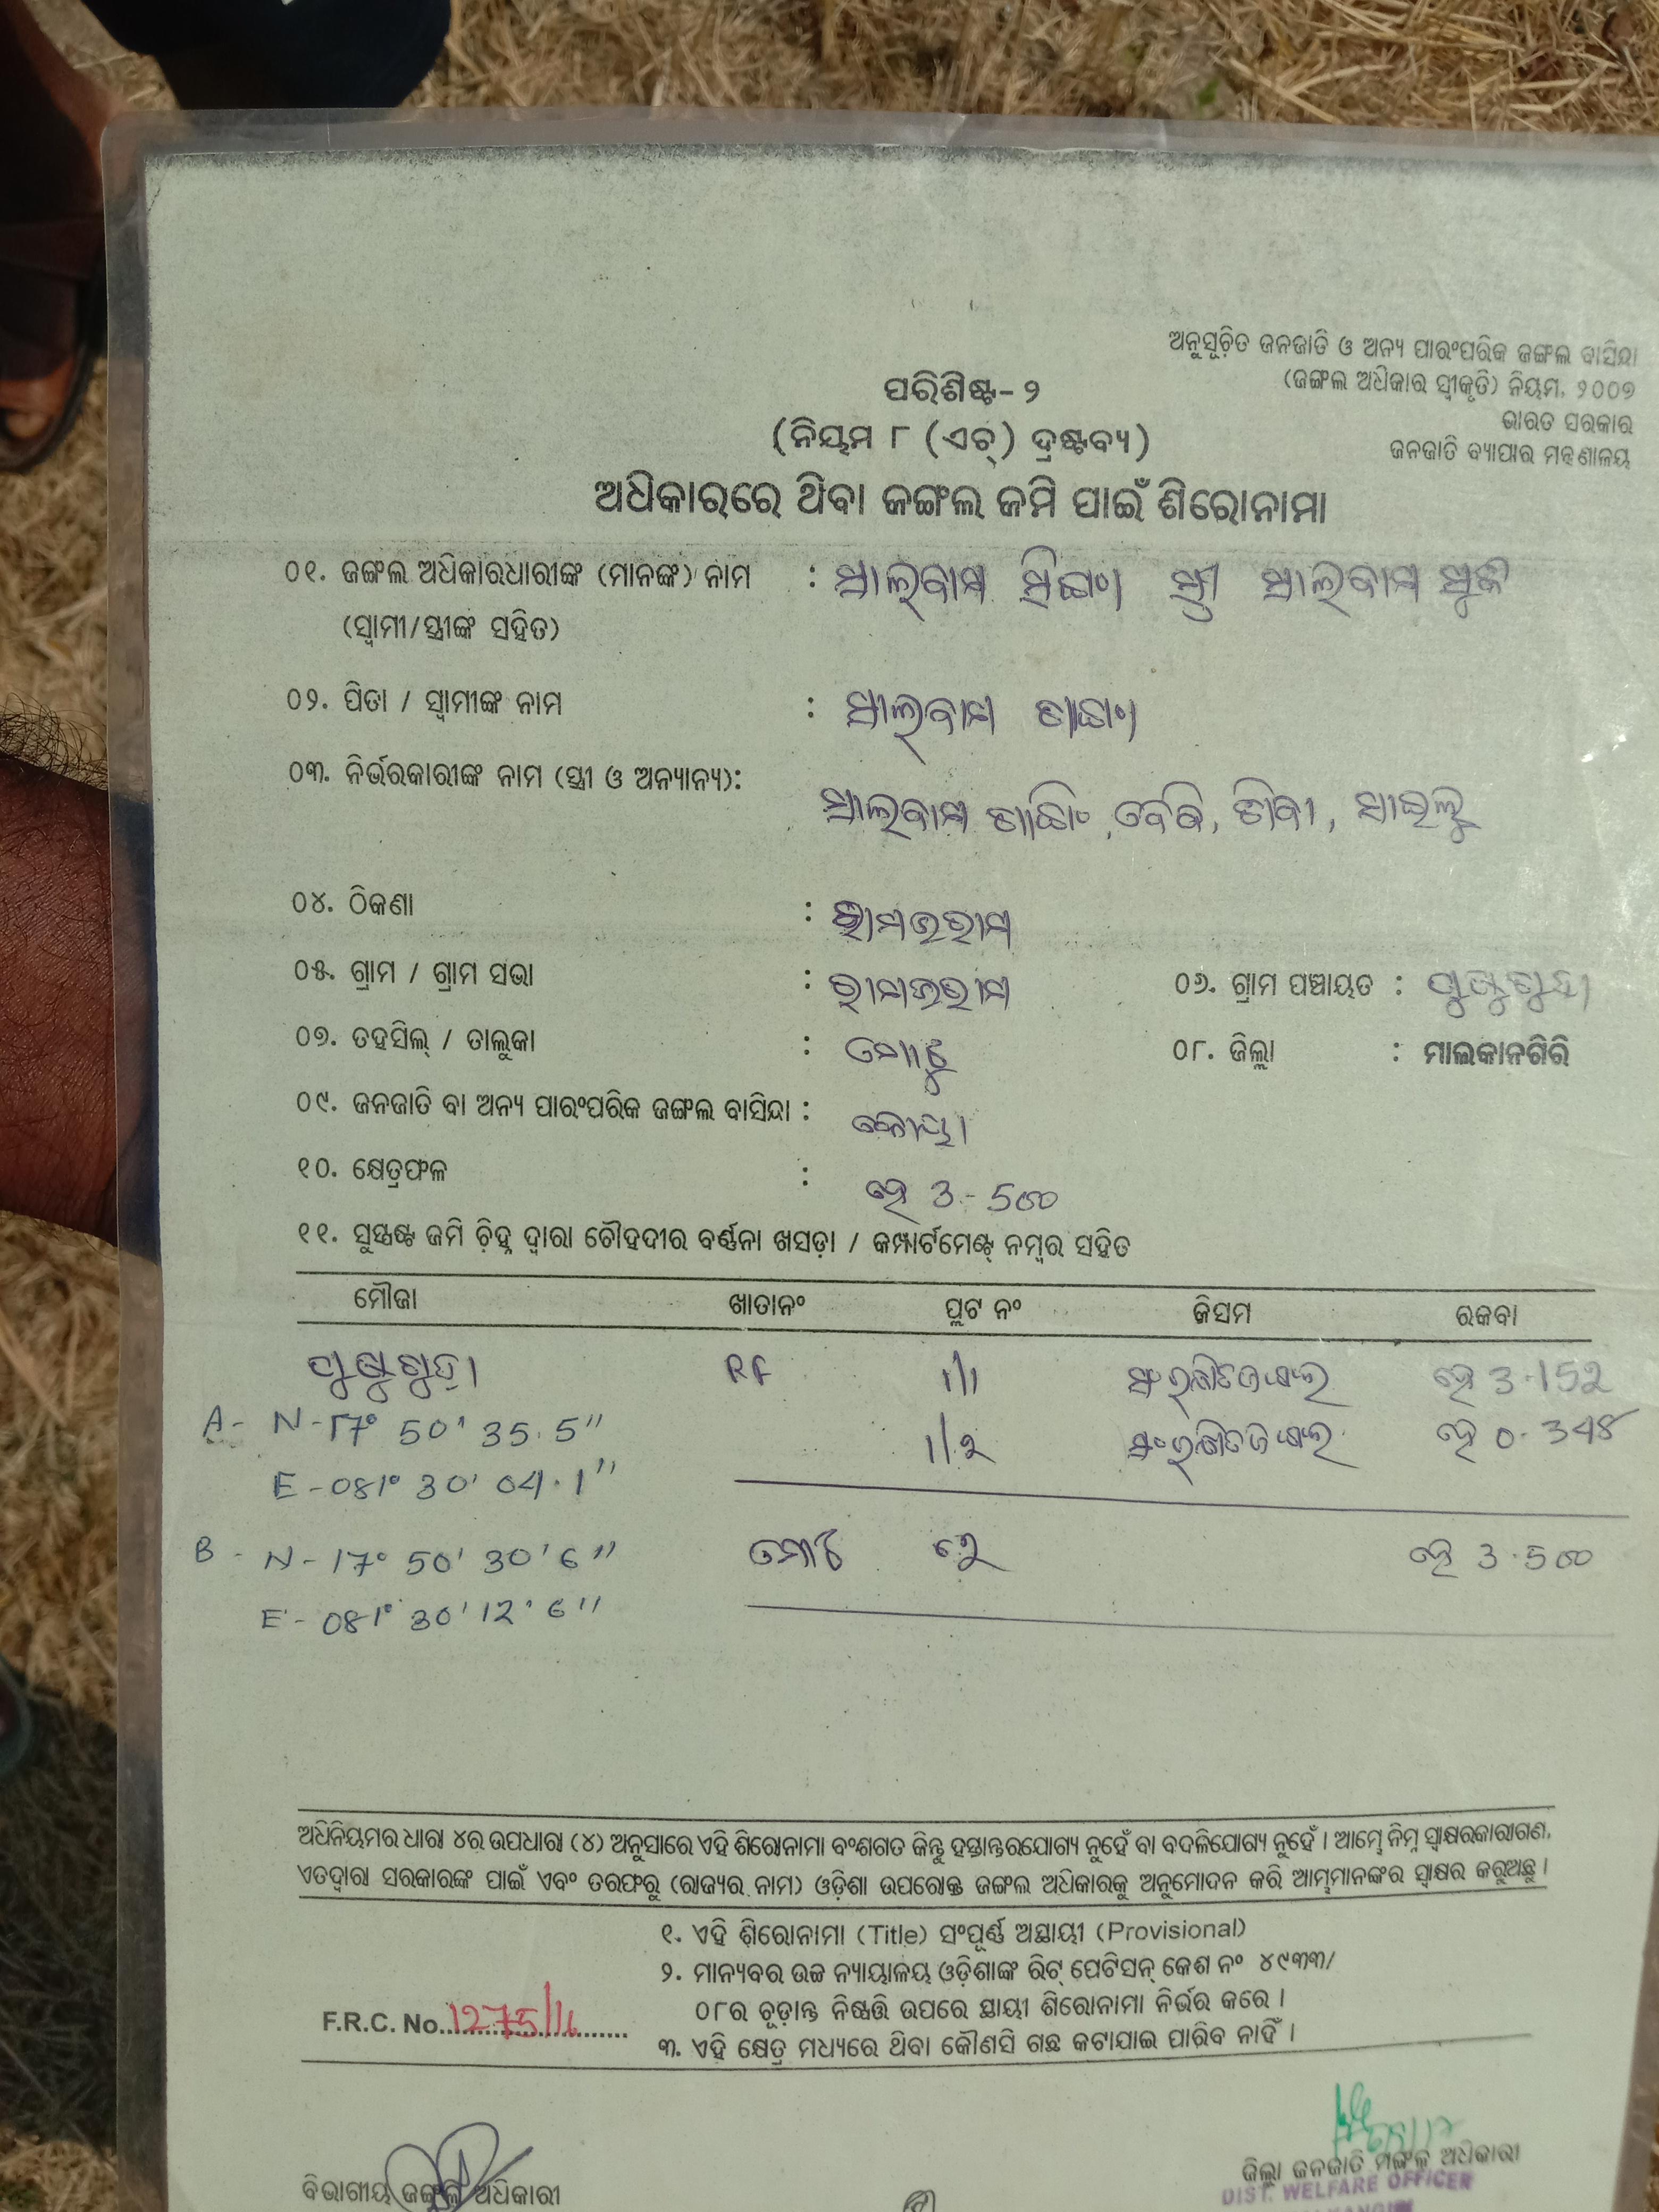 ଅନୁସୂଚିତ ଜନଜାତି ଓ ଅନ୍ୟ ପାରଂପରିକ ଜଙ୍ଗଲ ବାସିନ୍ଦା
(ଜଙ୍ଗଲ ଅଧିକାର ସ୍ୱୀକୃତି) ନିୟମ, ୨୦୦୭
ଭାରତ ସରକାର
ଜନଜାତି ବ୍ୟାପାର ମନ୍ତ୍ରଣାଳୟ
ପରିଶିଷ୍ଟ-୨
(ନିୟମ ୮ (ଏଚ୍) ଦ୍ରଷ୍ଟବ୍ୟ)
ଅଧିକାରରେ ଥିବା ଜଙ୍ଗଲ ଜମି ପାଇଁ ଶିରୋନାମା
୦୧. ଜଙ୍ଗଲ ଅଧିକାରଧାରୀଙ୍କ (ମାନଙ୍କ) ନାମ :
(ସ୍ୱାମୀ/ସ୍ତ୍ରୀଙ୍କ ସହିତ)
୦୨. ପିତା / ସ୍ୱାମୀଙ୍କ ନାମ :
୦୩. ନିର୍ଭରକାରୀଙ୍କ ନାମ (ସ୍ତ୍ରୀ ଓ ଅନ୍ୟାନ୍ୟ):
୦୪. ଠିକଣା :
୦୫. ଗ୍ରାମ / ଗ୍ରାମ ସଭା : ୦୬. ଗ୍ରାମ ପଞ୍ଚାୟତ :
୦୭. ତହସିଲ୍ / ତାଲୁକା : ମୋଟୁ ୦୮. ଜିଲ୍ଲା : ମାଲକାନଗିରି
୦୯. ଜନଜାତି ବା ଅନ୍ୟ ପାରଂପରିକ ଜଙ୍ଗଲ ବାସିନ୍ଦା : କୋୟା
୧୦. କ୍ଷେତ୍ରଫଳ : ହେ 3-500
୧୧. ସୁସ୍ପଷ୍ଟ ଜମି ଚିହ୍ନ ଦ୍ୱାରା ଚୌହଦୀର ବର୍ଣ୍ଣନା ଖସଡ଼ା / କମ୍ପାର୍ଟମେଣ୍ଟ୍ ନମ୍ବର ସହିତ
ମୌଜା ଖାତାନଂ ପ୍ଲଟ ନଂ କିସମ ରକବା
RF 1/1 ସଂରକ୍ଷିତ ଜଙ୍ଗଲ ହେ 3.152
A- N-17° 50' 35.5" 1/୨ ସଂରକ୍ଷିତ ଜଙ୍ଗଲ ହେ 0.348
E-081° 30' 04.1"
B- N-17° 50' 30'6" ମୋଟ ହେ 3.500
E-081° 30' 12'6"
ଅଧିନିୟମର ଧାରା ୪ର ଉପଧାରା (୪) ଅନୁସାରେ ଏହି ଶିରୋନାମା ବଂଶଗତ କିନ୍ତୁ ହସ୍ତାନ୍ତରଯୋଗ୍ୟ ନୁହେଁ ବା ବଦଳିଯୋଗ୍ୟ ନୁହେଁ । ଆମ୍ଭେ ନିମ୍ନ ସ୍ୱାକ୍ଷରକାରୀଗଣ,
ଏତଦ୍ୱାରା ସରକାରଙ୍କ ପାଇଁ ଏବଂ ତରଫରୁ (ରାଜ୍ୟର ନାମ) ଓଡ଼ିଶା ଉପରୋକ୍ତ ଜଙ୍ଗଲ ଅଧିକାରକୁ ଅନୁମୋଦନ କରି ଆମ୍ଭମାନଙ୍କର ସ୍ୱାକ୍ଷର କରୁଅଛୁ ।
୧. ଏହି ଶିରୋନାମା (Title) ସଂପୂର୍ଣ୍ଣ ଅସ୍ଥାୟୀ (Provisional)
୨. ମାନ୍ୟବର ଉଚ୍ଚ ନ୍ୟାୟାଳୟ ଓଡ଼ିଶାଙ୍କ ରିଟ୍ ପେଟିସନ୍ କେଶ ନଂ ୪୯୩୩/
୦୮ର ଚୂଡ଼ାନ୍ତ ନିଷ୍ପତ୍ତି ଉପରେ ସ୍ଥାୟୀ ଶିରୋନାମା ନିର୍ଭର କରେ ।
F.R.C. No. 1275/16
୩. ଏହି କ୍ଷେତ୍ର ମଧ୍ୟରେ ଥିବା କୌଣସି ଗଛ କଟାଯାଇ ପାରିବ ନାହିଁ ।
ବିଭାଗୀୟ ଜଙ୍ଗଲ ଅଧିକାରୀ ଜିଲ୍ଲା ଜନଜାତି ମଙ୍ଗଳ ଅଧିକାରୀ
DIST. WELFARE OFFICER